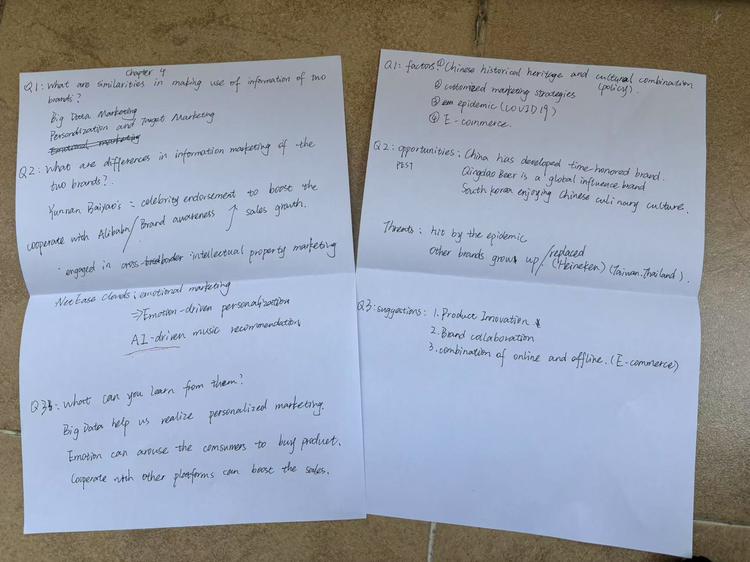 Chapter 4
Q1: What are similarities in making use of information of two
brands?
Big Data Marketing
Personalization and Target Marketing
Emotional marketing
Q2: What are differences in information marketing of the
two brands?
Yunnan Baiyao's: celebrity endorsement to boost the
cooperate with Alibaba / Brand awareness ↗ sales growth.
engaged in cross-border intellectual property marketing
NetEase Clouds: emotional marketing
⇒ Emotion-driven personalization
AI-driven music recommendation
Q3: What can you learn from them?
Big Data help us realize personalized marketing.
Emotion can arouse the comsumers to buy product.
Cooperate with other platforms can boost the sales.
Q1: factors: ① Chinese historical heritage and cultural combination
(policy).
② customized marketing strategies
③ epidemic (COVID19)
④ E-commerce.
Q2: opportunities: China has developed time-honored brand.
PEST
Qingdao Beer is a global influence brand
South korea enjoying Chinese culinary culture.
Threats: hit by the epidemic
Other brands grows up / replaced
(Heineken) (Taiwan.Thailand).
Q3: suggestions: 1. Product Innovation
2. Brand collaboration
3. combination of online and offline. (E-commerce)